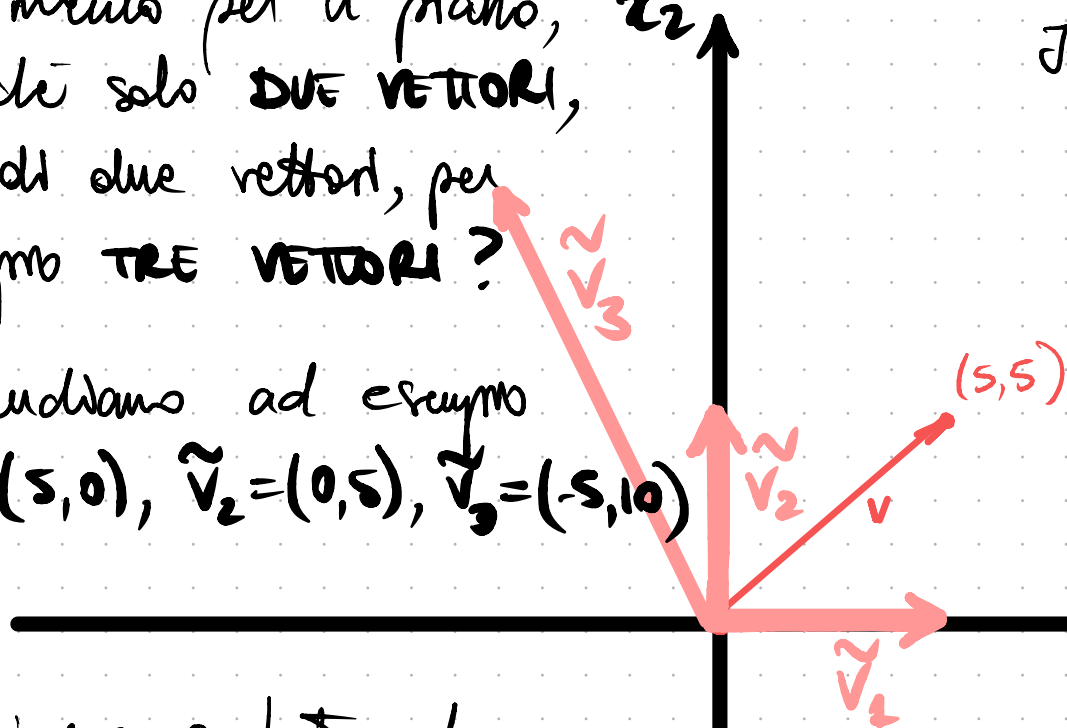 per il piano,
solo DUE VETTORI,
di due vettori, per
TRE VETTORI?
ad esempio
(5,0), ṽ₂=(0,5), ṽ₃=(-5,10)
x₂
ṽ₃
(5,5)
ṽ₂
v
ṽ₁